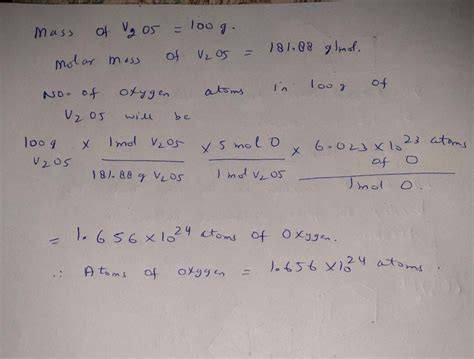 Mass of V2O5 = 100 g.
Molar mass of V2O5 = 181.88 g/mol.
No. of oxygen atoms in 100 g of
V2O5 will be
100 g V2O5 × 1 mol V2O5 / 181.88 g V2O5 × 5 mol O / 1 mol V2O5 × 6.023 × 10^23 atoms of O / 1 mol O.
= 1.656 × 10^24 atoms of Oxygen.
∴ Atoms of oxygen = 1.656 × 10^24 atoms.